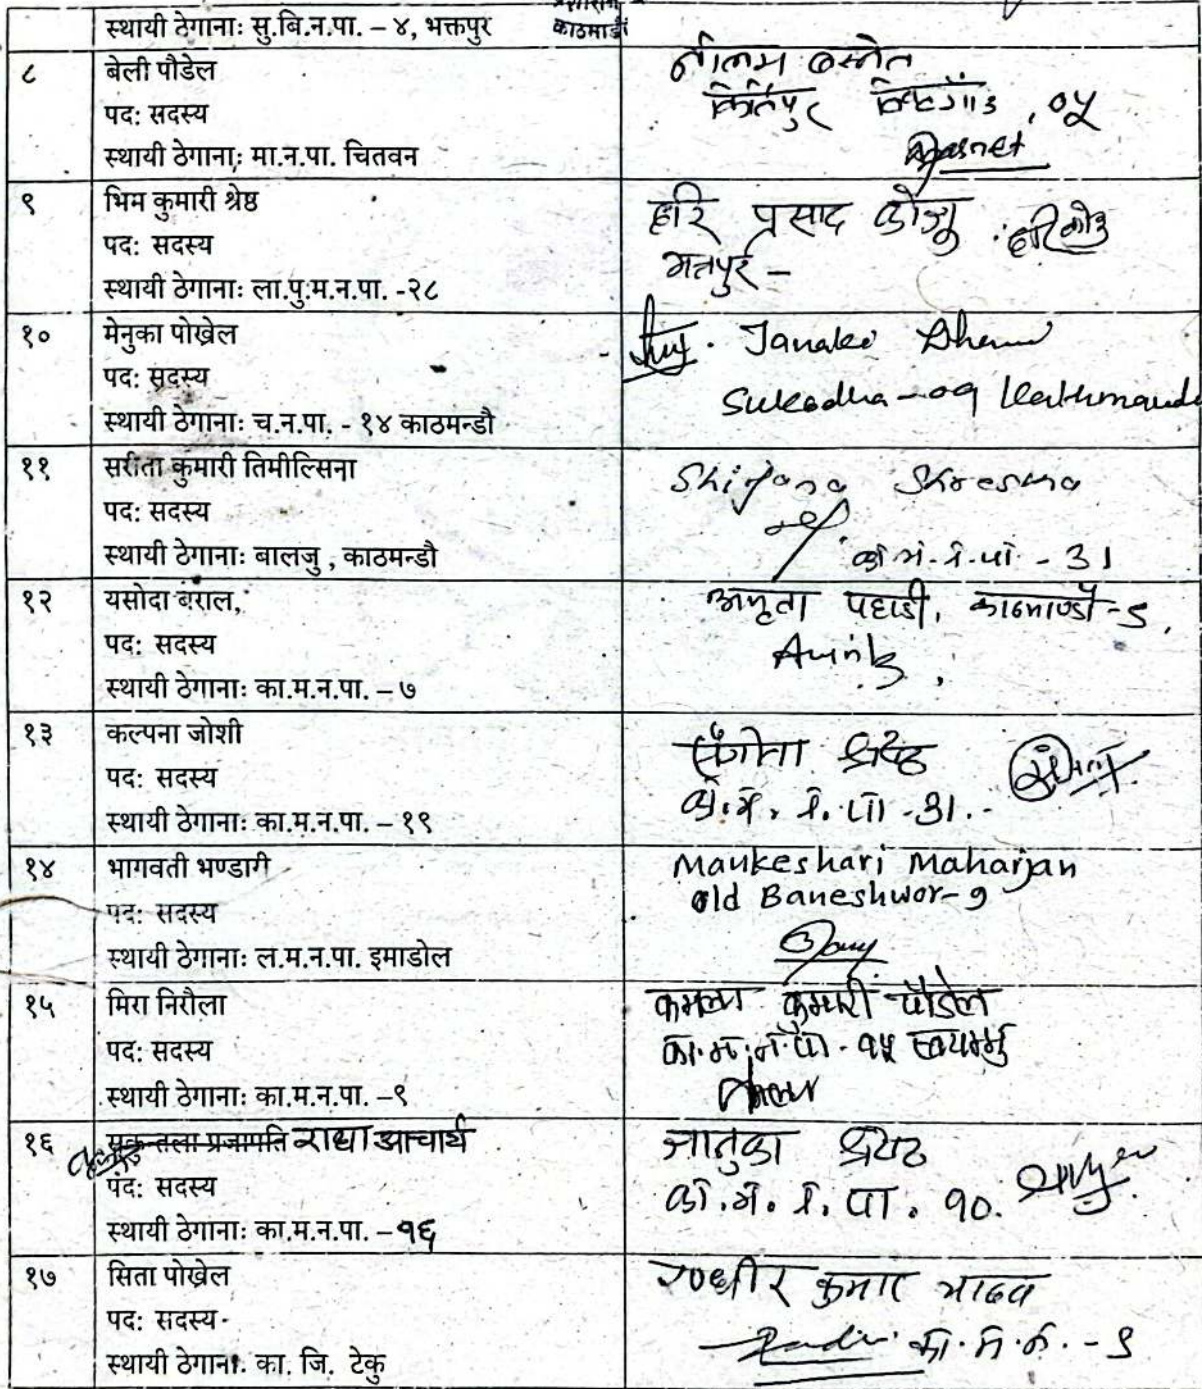 स्थायी ठेगानाः सु.बि.न.पा. – ४, भक्तपुर
काठमाडौं
८
बेली पौडेल
पद: सदस्य
स्थायी ठेगानाः मा.न.पा. चितवन
बस्नेत
०५
९
भिम कुमारी श्रेष्ठ
पद: सदस्य
स्थायी ठेगानाः ला.पु.म.न.पा. -२८
हरि प्रसाद कोजू
भक्तपुर –
१०
मेनुका पोख्रेल
पद: सदस्य
स्थायी ठेगानाः च.न.पा. - १४ काठमन्डौ
-09 Kathmandu
११
सरीता कुमारी तिमील्सिना
पद: सदस्य
स्थायी ठेगानाः बालजु , काठमन्डौ
का.म.न.पा. - 31
१२
यसोदा बराल,
पद: सदस्य
स्थायी ठेगानाः का.म.न.पा. – ७
अमृता पहाडी, काठमाण्डौ
१३
कल्पना जोशी
पद: सदस्य
स्थायी ठेगानाः का.म.न.पा. – १९
श्रेष्ठ
का.म.न.पा -31.
१४
भागवती भण्डागी
पद: सदस्य
स्थायी ठेगानाः ल.म.न.पा. इमाडोल
Mankeshari Maharjan
old Baneshwor-9
१५
मिरा निरौला
पद: सदस्य
स्थायी ठेगानाः का.म.न.पा. –९
कमला कुमारी पौडेल
का.म.न.पा. - १५ स्वयम्भु
१६
सकुन्तला प्रजापति राधा आचार्य
पद: सदस्य
स्थायी ठेगानाः का.म.न.पा. –१६
श्रेष्ठ
का.म.न.पा. १०.
१७
सिता पोख्रेल
पद: सदस्य
स्थायी ठेगानाः का. जि. टेकु
रणधीर कुमार यादव
का.म.न. - ९